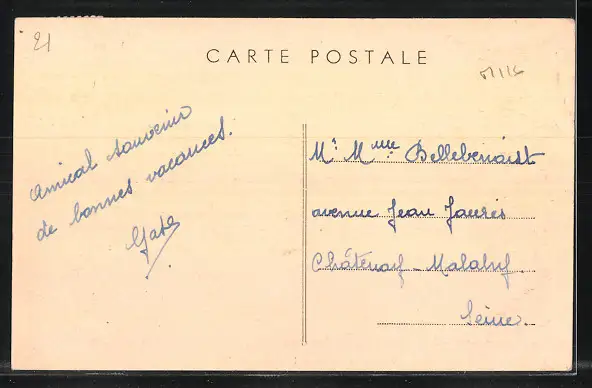 21
CARTE POSTALE
amical souvenir
de bonnes vacances.
Mr. Mme Bellebenoist
avenue Jean Jaurès
Châtenay - Malabry
Seine.